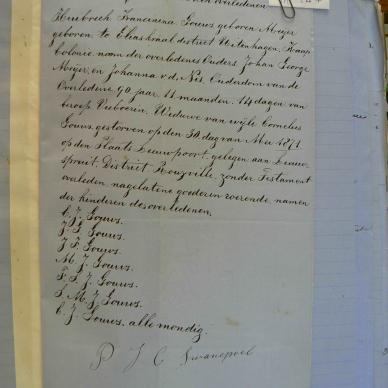 overledenen.
Huibrech Francina Gouws geboren Meijer
geboren te Elias kraal district Uitenhagen, Kaap
kolonie. naam der overledenes Ouders Johan George
Meijer, en Johanna v. d. Nes. Ouderdom van de
Overledene 90 jaar, 11 maanden. 14 dagen van
beroep Veeboeren. Weduwe van wijle Cornelius
Gouws gestorven op den dag van Mei 1871
op den Plaats Leeuwpoort, gelegen aan Leeuw
spruit District Rouxville, zonder Testament
overleden, nagelatene goederen roerende, namen
der kinderen des overledenen.
J. Gouws.
J. Gouws.
J. F. Gouws.
M. J. Gouws.
F. F. J. Gouws.
S. M. J. Gouws.
C. J. Gouws. alle mondig.
P J C Swanepoel